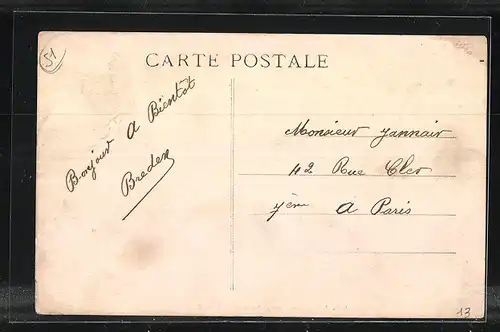 51
CARTE POSTALE
Bonjour
A Bientot
Breden
Monsieur Jannair
42 Rue Cler
7ème A Paris
13